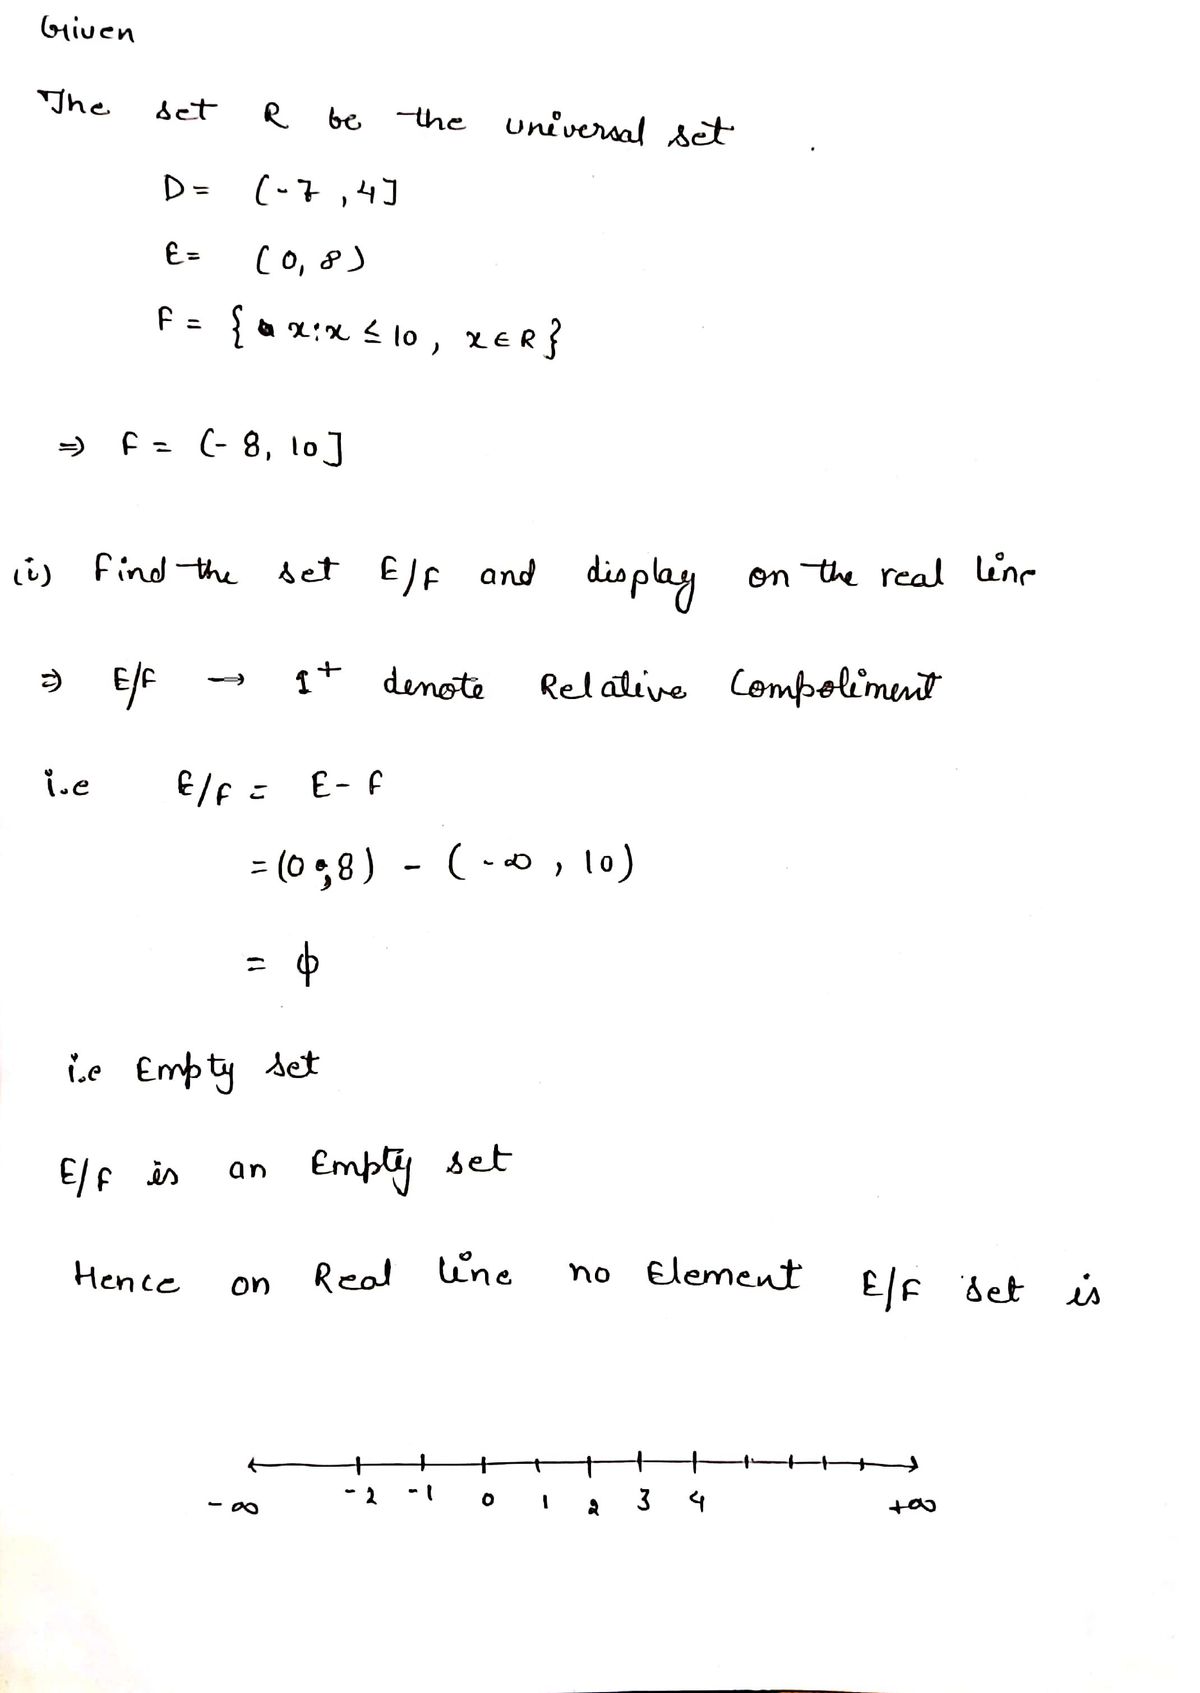 Given
The set R be the universal set
D = (-7, 4]
E = (0, 8)
F = { x:x ≤ 10, x ∈ R}
⇒ F = (-8, 10]
(i) Find the set E/F and display on the real line
⇒ E/F → It denote Relative Compoliment
i.e E/F = E - F
= (0,8) - (-∞, 10)
= ϕ
i.e Empty set
E/F is an Empty set
Hence on Real line no Element E/F set is
-∞ -2 -1 0 1 2 3 4 +∞